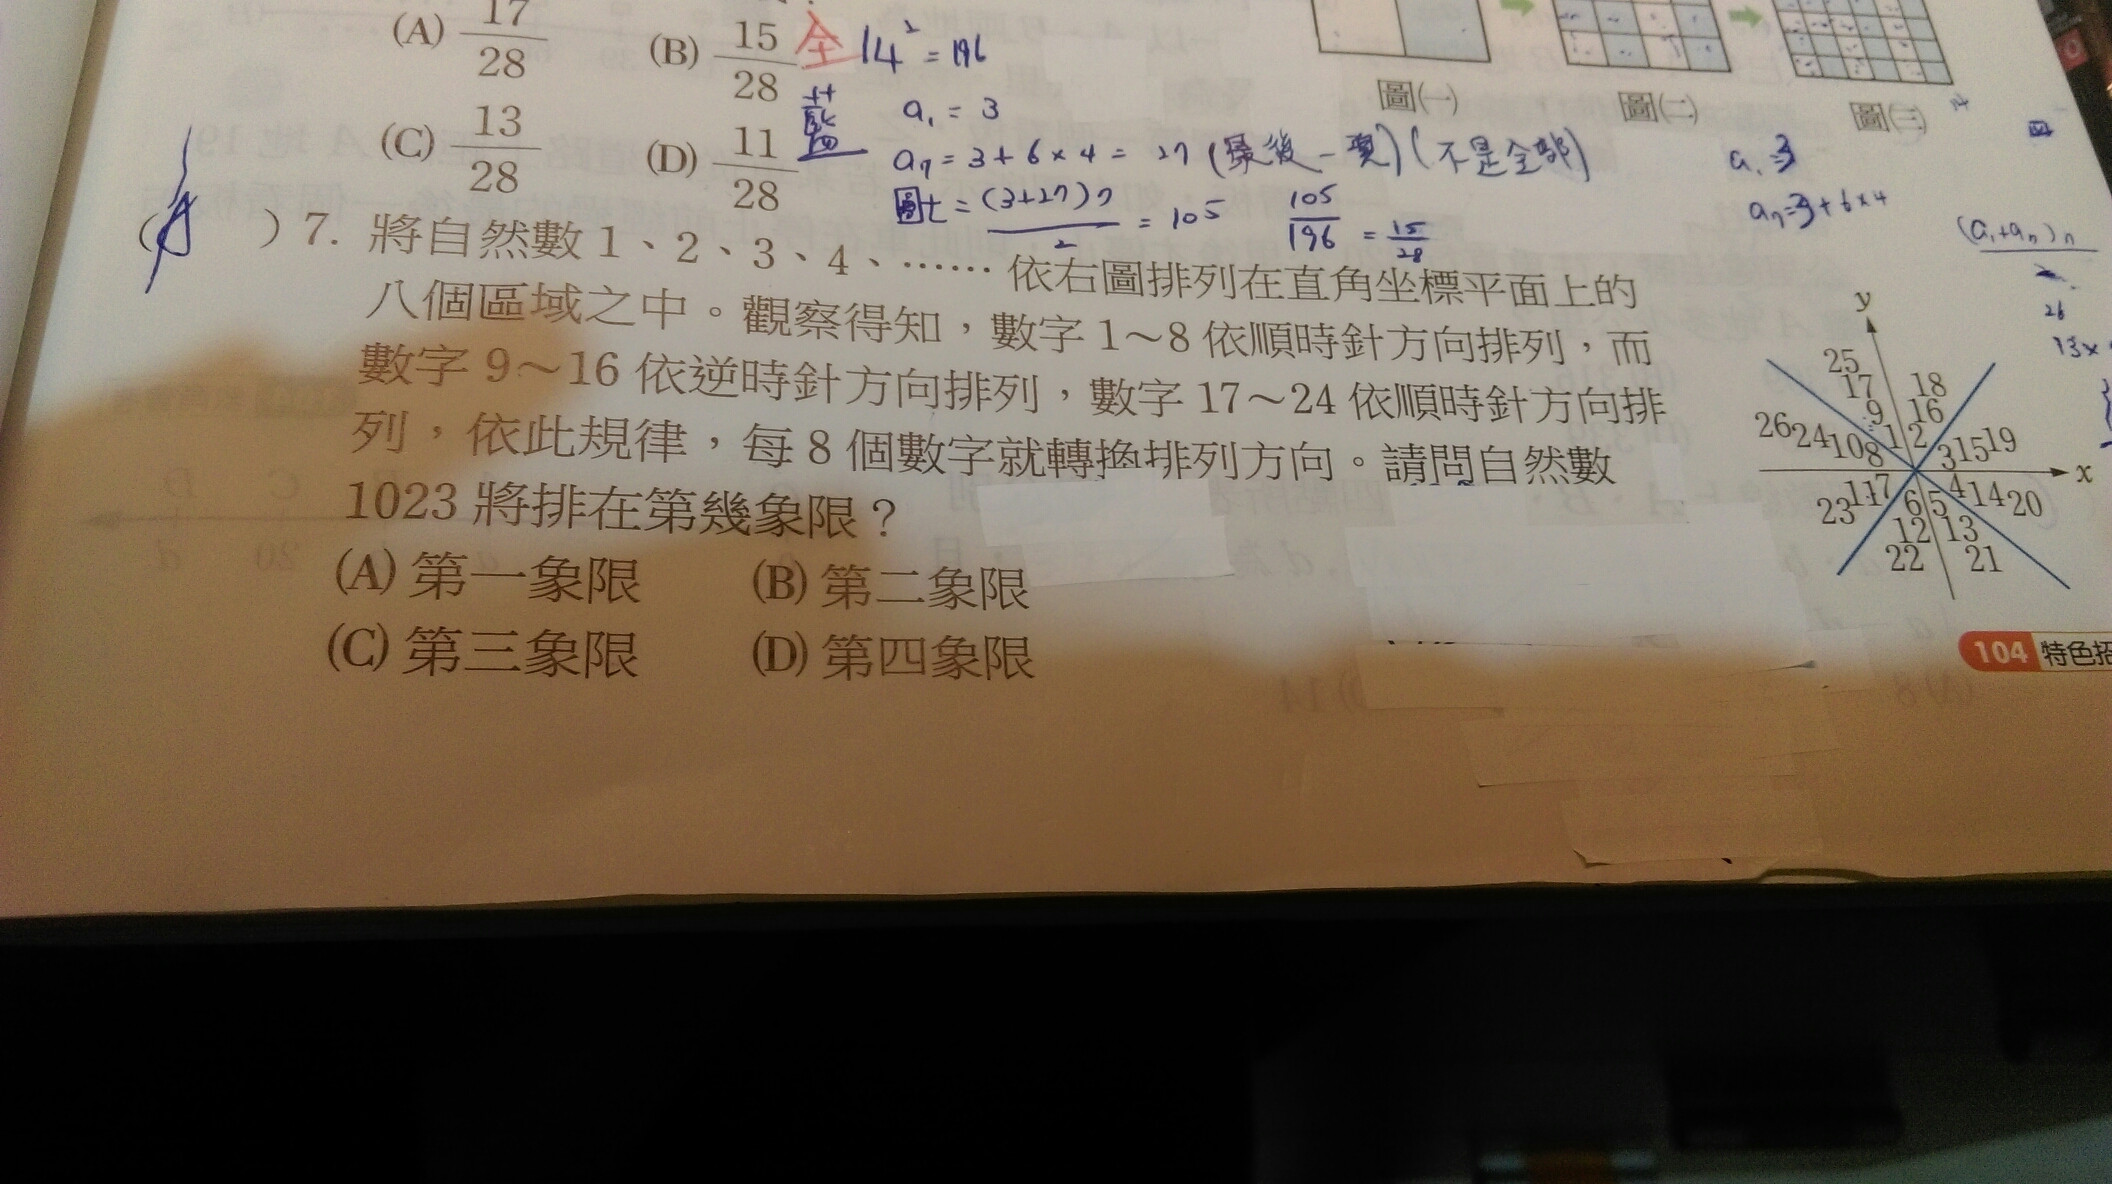 (A) 17/28 (B) 15/28 全 14² = 196
藍 a₁ = 3
(C) 13/28 (D) 11/28
a₇ = 3 + 6 × 4 = 27 (最後一項) (不是全部)
圖七 = (3+27)7/2 = 105 105/196 = 15/28
圖㈠ 圖㈡ 圖㈢
a₁=3
a₇=3+6×4
(a₁+aₙ)n/2
26
13×
( A ) 7. 將自然數 1、2、3、4、…… 依右圖排列在直角坐標平面上的
八個區域之中。觀察得知,數字 1~8 依順時針方向排列,而
數字 9~16 依逆時針方向排列,數字 17~24 依順時針方向排
列,依此規律,每 8 個數字就轉換排列方向。請問自然數
1023 將排在第幾象限?
(A) 第一象限 (B) 第二象限
(C) 第三象限 (D) 第四象限
y
25
17 18
9 16
26 24 10 8 1 2 3 15 19
x
23 11 7 6 5 4 14 20
12 13
22 21
104 特色招